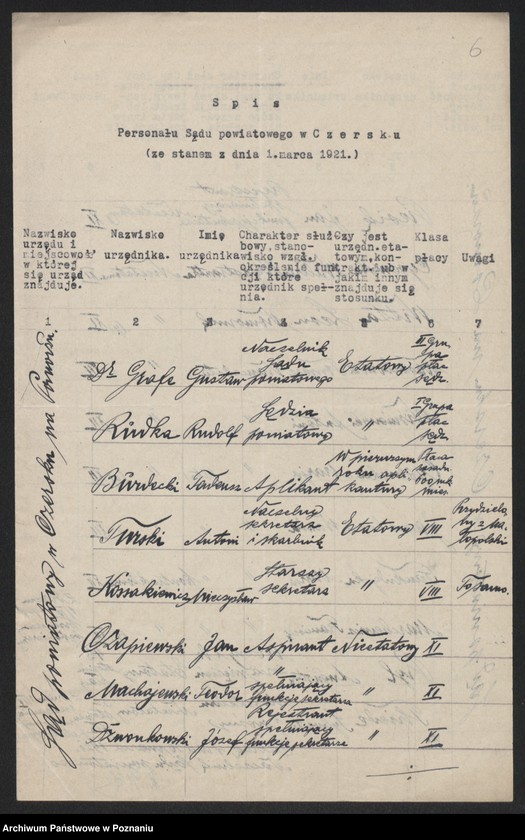 6
S p i s
Personału Sądu powiatowego w C z e r s k u
(ze stanem z dnia 1.marca 1921.)
Nazwisko urzędu i miejscowość w której się urząd znajduje.
Nazwisko urzędnika.
Imię urzędnika
Charakter służbowy, stanowisko wzgl. określenie funkcji które urzędnik spełnia.
Czy jest urzędn. etatowym, kontrakt. lub w jakim innym znajduje się stosunku.
Klasa płacy
Uwagi
1 2 3 4 5 6 7
Sąd powiatowy w Czersku na Pomorzu.
Dr Grafe Gustaw Naczelnik Sądu powiatowego Etatowy II Grupa płac sędz.
Rudka Rudolf Sędzia powiatowy " I Grupa płac sędz.
Burdecki Tadeusz Aplikant W pierwszym roku aplikantury Płaca
Turski Antoni Naczelny sekretarz i skarbnik Etatowy VIII Przydzielony z Małopolski
Kossakiewicz Mieczysław Starszy sekretarz " VIII
Ożapiewski Jan Aspirant Nieetatowy XI
Machajewski Teodor " spełniający funkcje sekretarza " XI
Dzwonkowski Józef Rejestrant spełniający funkcje sekretarza " XI
Archiwum Państwowe w Poznaniu